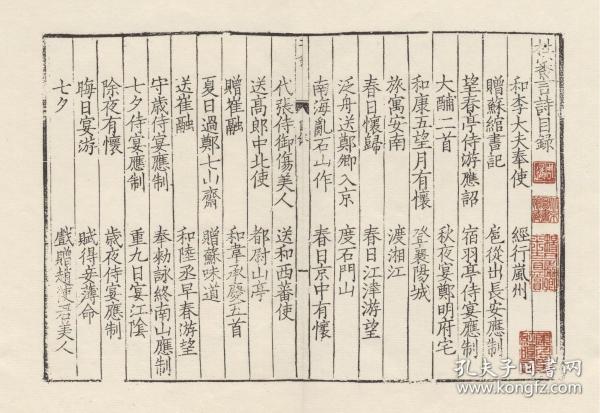 杜審言詩目錄
和李大夫奉使 經行嵐州
贈蘇綰書記 扈從出長安應制
望春亭侍游應詔 宿羽亭侍宴應制
大酺二首 秋夜宴鄭明府宅
和康五望月有懷 登襄陽城
旅寓安南 渡湘江
春日懷歸 春日江津游望
泛舟送鄭卿入京 度石門山
南海亂石山作 春日京中有懷
代張侍御傷美人 送和西蕃使
送高郎中北使 都尉山亭
贈崔融 和韋承慶五首
夏日過鄭七山齋 贈蘇味道
送崔融 和陸丞早春游望
守歲侍宴應制 奉勑詠終南山應制
七夕侍宴應制 重九日宴江陰
除夜有懷 歲夜侍宴應制
晦日宴游 賦得妾薄命
七夕 戲贈趙使君美人
孔夫子旧书网
www.kongfz.com